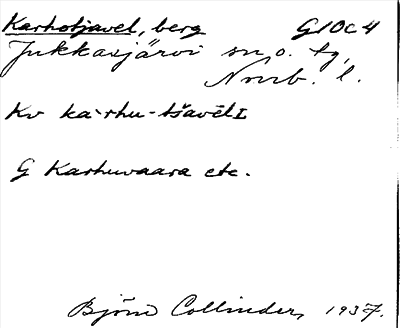 Karhotjavel, berg G10c4
Jukkasjärvi sn o. tg,
Norrb. l.
Kv ka`rhu-tšavēlɪ
G Karhuvaara etc.
Björn Collinder, 1937.